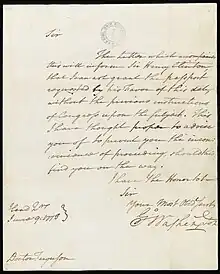 Sir
The Letter which accompanies
this will inform Sir Henry Clinton
that I cannot grant the passport
requested by his Favor of this date,
without the previous instructions
of Congress upon the subject. This
I have thought proper to advise
you of to prevent you the incon-
venience of proceeding should this
find you on the way.
I have the Honor to be
Sir
Your Most Obed Servt
Go Washington
June 9. 1778
Doctor Ferguson